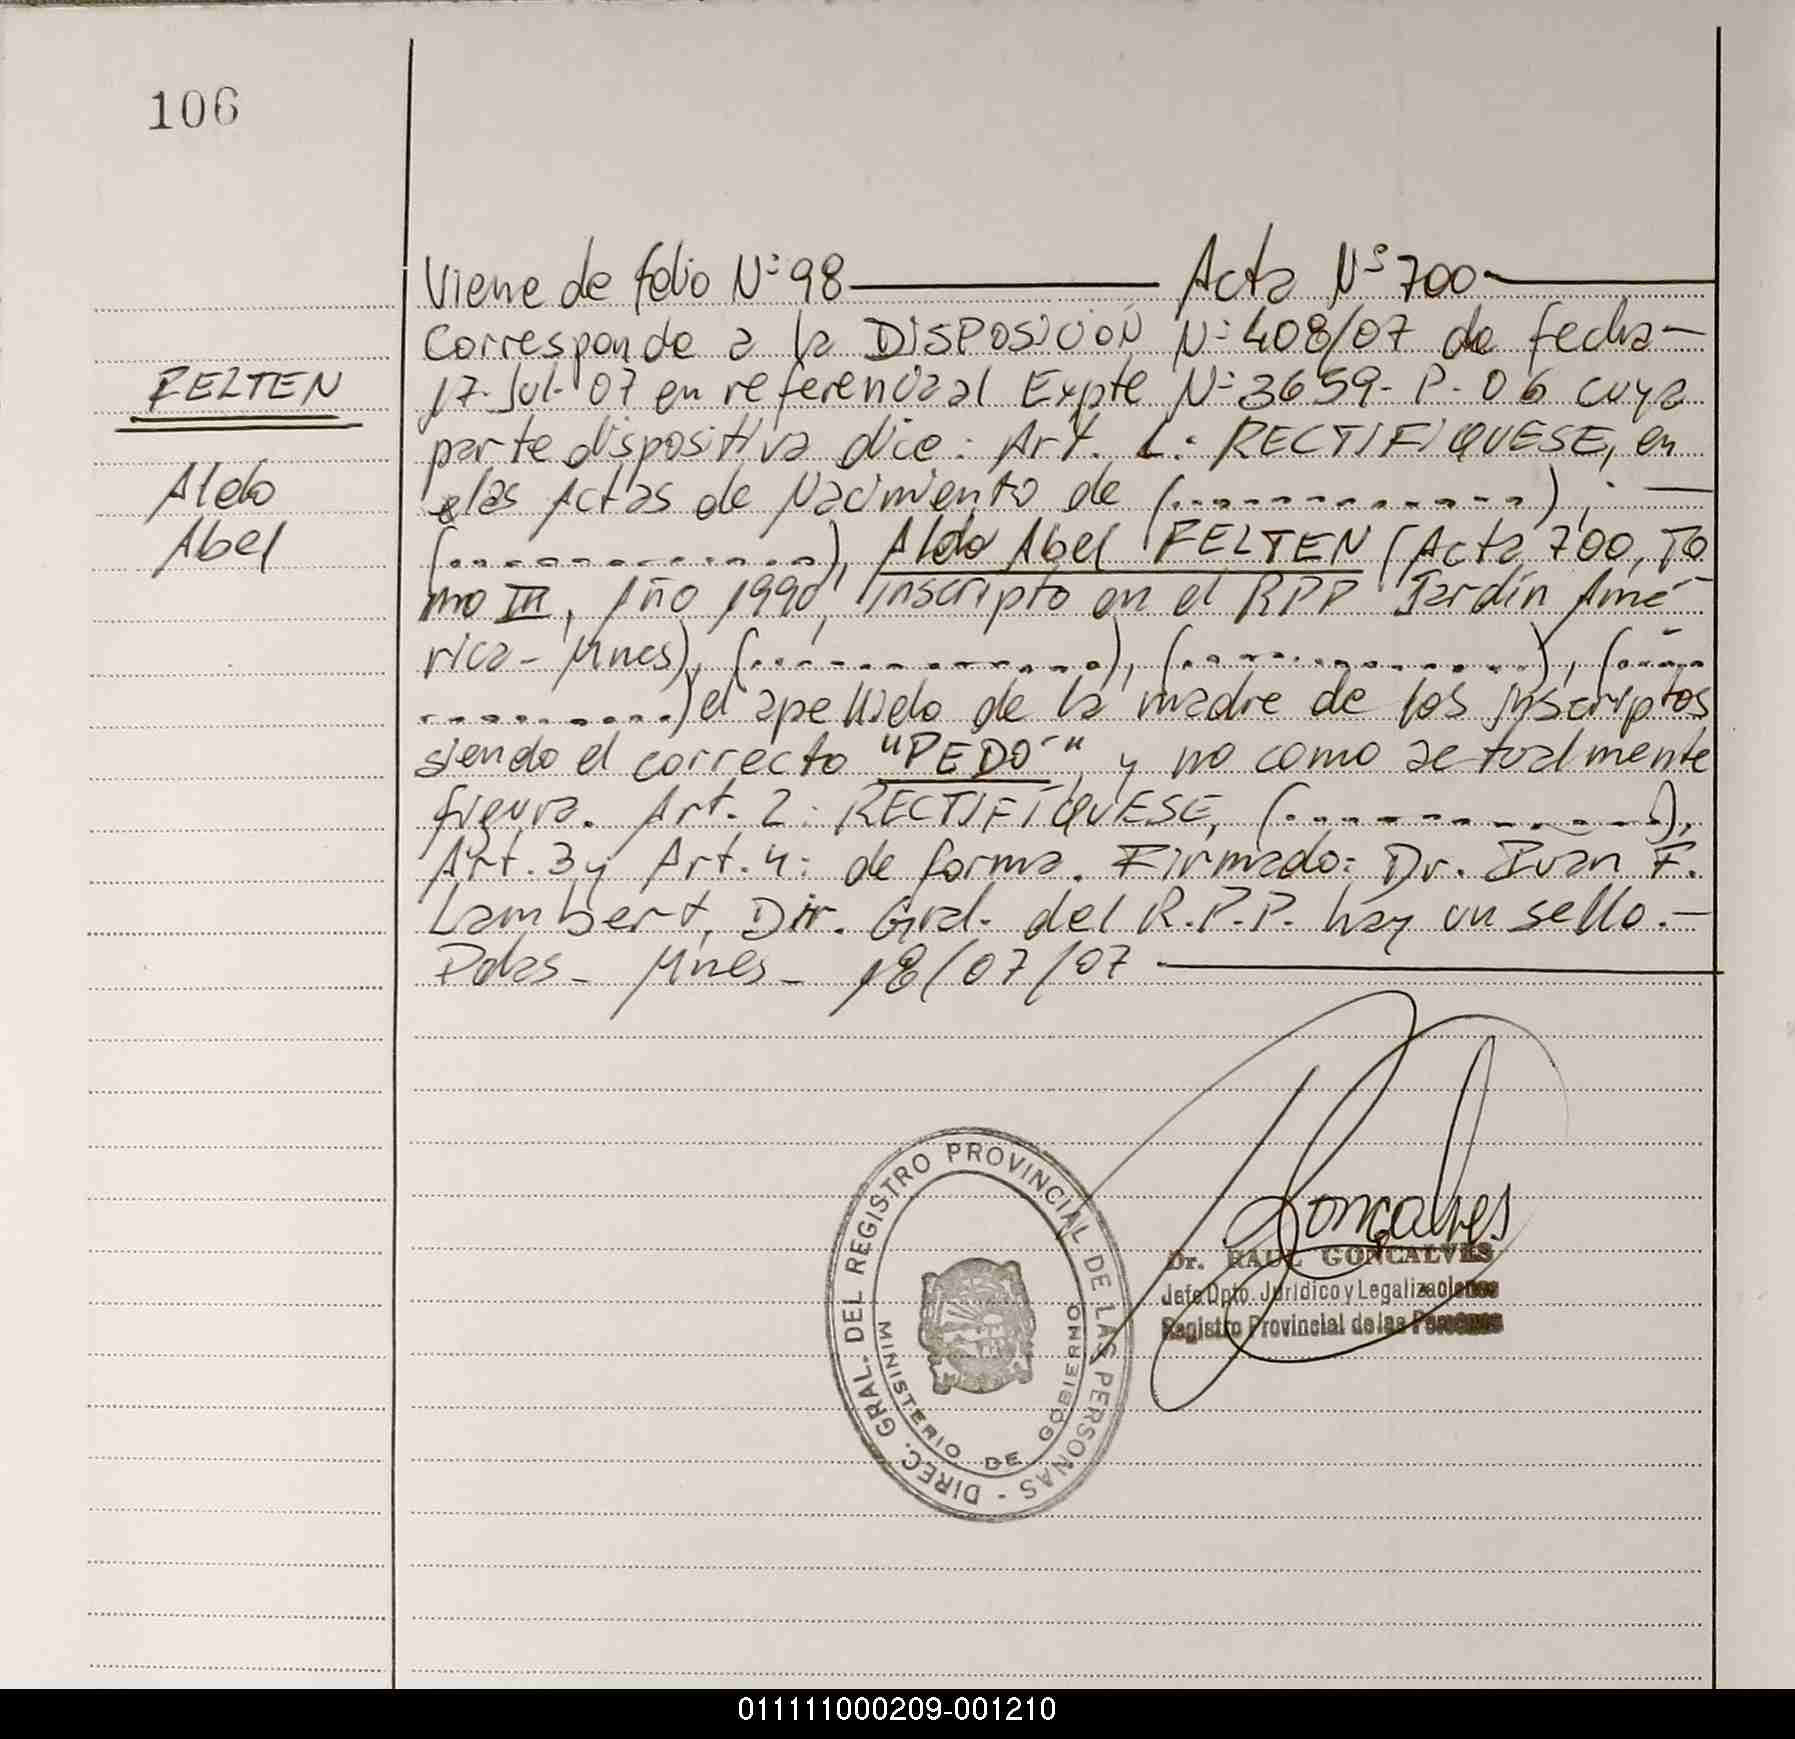 106
Viene de folio Nº 98 — Acta Nº 700 —
Corresponde a la DISPOSICIÓN Nº 408/07 de fecha —
FELTEN
17-Jul-07 en referencia al Expte Nº 3659-P-06 cuya
parte dispositiva dice: Art. 1: RECTIFIQUESE, en
Aldo
las Actas de Nacimiento de (.............), —
Abel
(.............), Aldo Abel FELTEN (Acta 700, To
mo III, Año 1990, inscripto en el RPP Jardín Amé
rica - Mnes), (.............), (.............), (......
..........) el apellido de la madre de los inscriptos
siendo el correcto "PEDÓ", y no como actualmente
figura. Art. 2: RECTIFÍQUESE, (.............),
Art. 3 y Art. 4: de forma. Firmado: Dr. Ivan F.
Lambert, Dir. Gral. del R.P.P. hay un sello. —
Pdas - Mnes - 18/07/07 —
DIREC. GRAL. DEL REGISTRO PROVINCIAL DE LAS PERSONAS -
MINISTERIO DE GOBIERNO
Gonçalves
Dr. RAUL GONCALVES
Jefe Dpto. Jurídico y Legalizaciones
Registro Provincial de las Personas
011111000209-001210